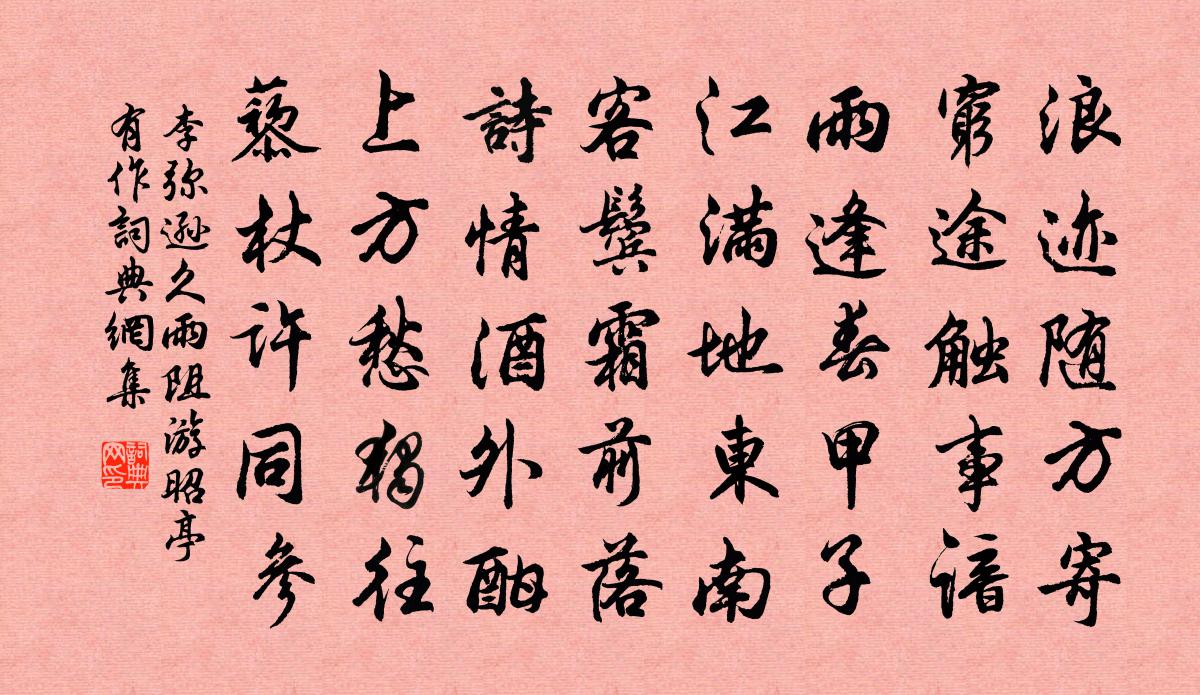 浪迹随方寄
窮途触事諳
雨逢春甲子
江满地東南
客鬓霜前落
詩情酒外酣
上方愁獨往
藜杖许同參
李弥遜久雨阻游昭亭
有作詞典網集
詞典网印